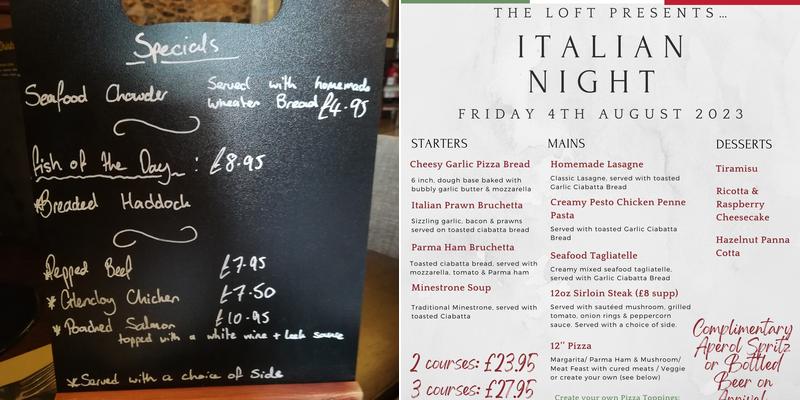 Specials
Seafood Chowder
Served with homemade
wheaten Bread £4.95
Fish of the Day : £8.95
*Breaded Haddock
*Pepped Beef £7.95
*Glencloy Chicken £7.50
*Poached Salmon £10.95
topped with a white wine + leek sauce
*Served with a choice of Side
THE LOFT PRESENTS...
ITALIAN
NIGHT
FRIDAY 4TH AUGUST 2023
STARTERS
Cheesy Garlic Pizza Bread
6 inch, dough base baked with
bubbly garlic butter & mozzarella
Italian Prawn Bruchetta
Sizzling garlic, bacon & prawns
served on toasted ciabatta bread
Parma Ham Bruchetta
Toasted ciabatta bread, served with
mozzarella, tomato & Parma ham
Minestrone Soup
Traditional Minestrone, served with
toasted Ciabatta
2 courses: £23.95
3 courses: £27.95
MAINS
Homemade Lasagne
Classic Lasagne, served with toasted
Garlic Ciabatta Bread
Creamy Pesto Chicken Penne
Pasta
Served with toasted Garlic Ciabatta
Bread
Seafood Tagliatelle
Creamy mixed seafood tagliatelle,
served with Garlic Ciabatta Bread
12oz Sirloin Steak (£8 supp)
Served with sautéed mushroom, grilled
tomato, onion rings & peppercorn
sauce. Served with a choice of side.
12" Pizza
Margarita/ Parma Ham & Mushroom/
Meat Feast with cured meats / Veggie
or create your own (see below)
Create your own Pizza Toppings:
DESSERTS
Tiramisu
Ricotta &
Raspberry
Cheesecake
Hazelnut Panna
Cotta
Complimentary
Aperol Spritz
or Bottled
Beer on
Arrival